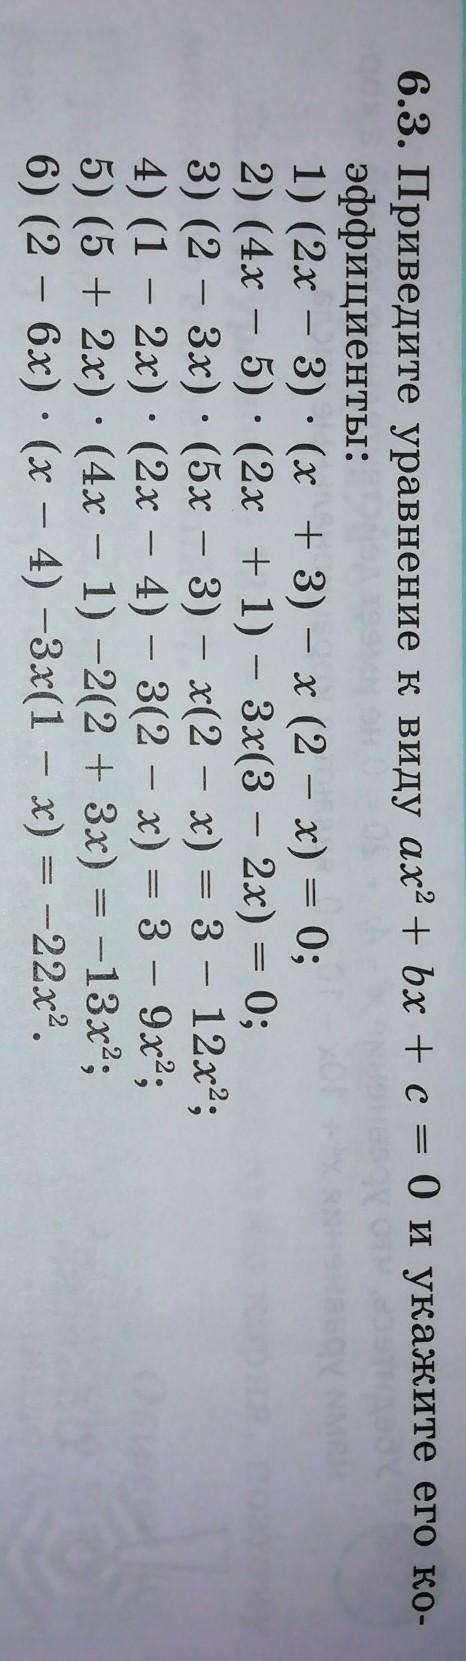 6.3. Приведите уравнение к виду ax² + bx + c = 0 и укажите его ко-
эффициенты:
1) (2x − 3) · (x + 3) − x (2 − x) = 0;
2) (4x − 5) · (2x + 1) − 3x(3 − 2x) = 0;
3) (2 − 3x) · (5x − 3) − x(2 − x) = 3 − 12x²;
4) (1 − 2x) · (2x − 4) − 3(2 − x) = 3 − 9x²;
5) (5 + 2x) · (4x − 1) −2(2 + 3x) = −13x²;
6) (2 − 6x) · (x − 4) −3x(1 − x) = −22x².